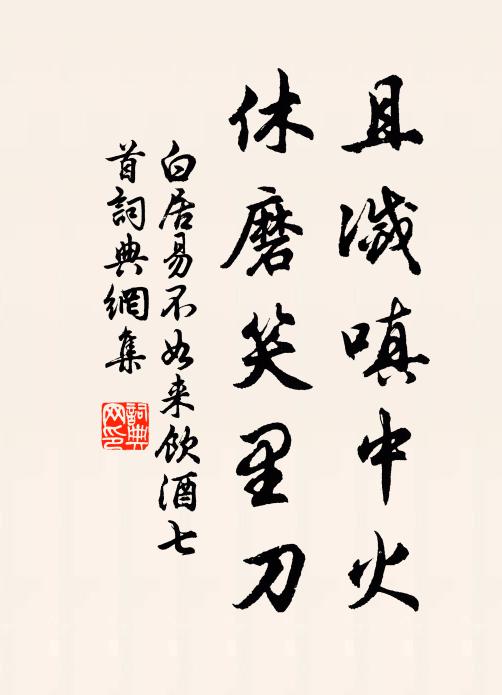 且滅嗔中火
休磨笑里刀
白居易不如来飲酒七
首詞典網集
詞典
网印